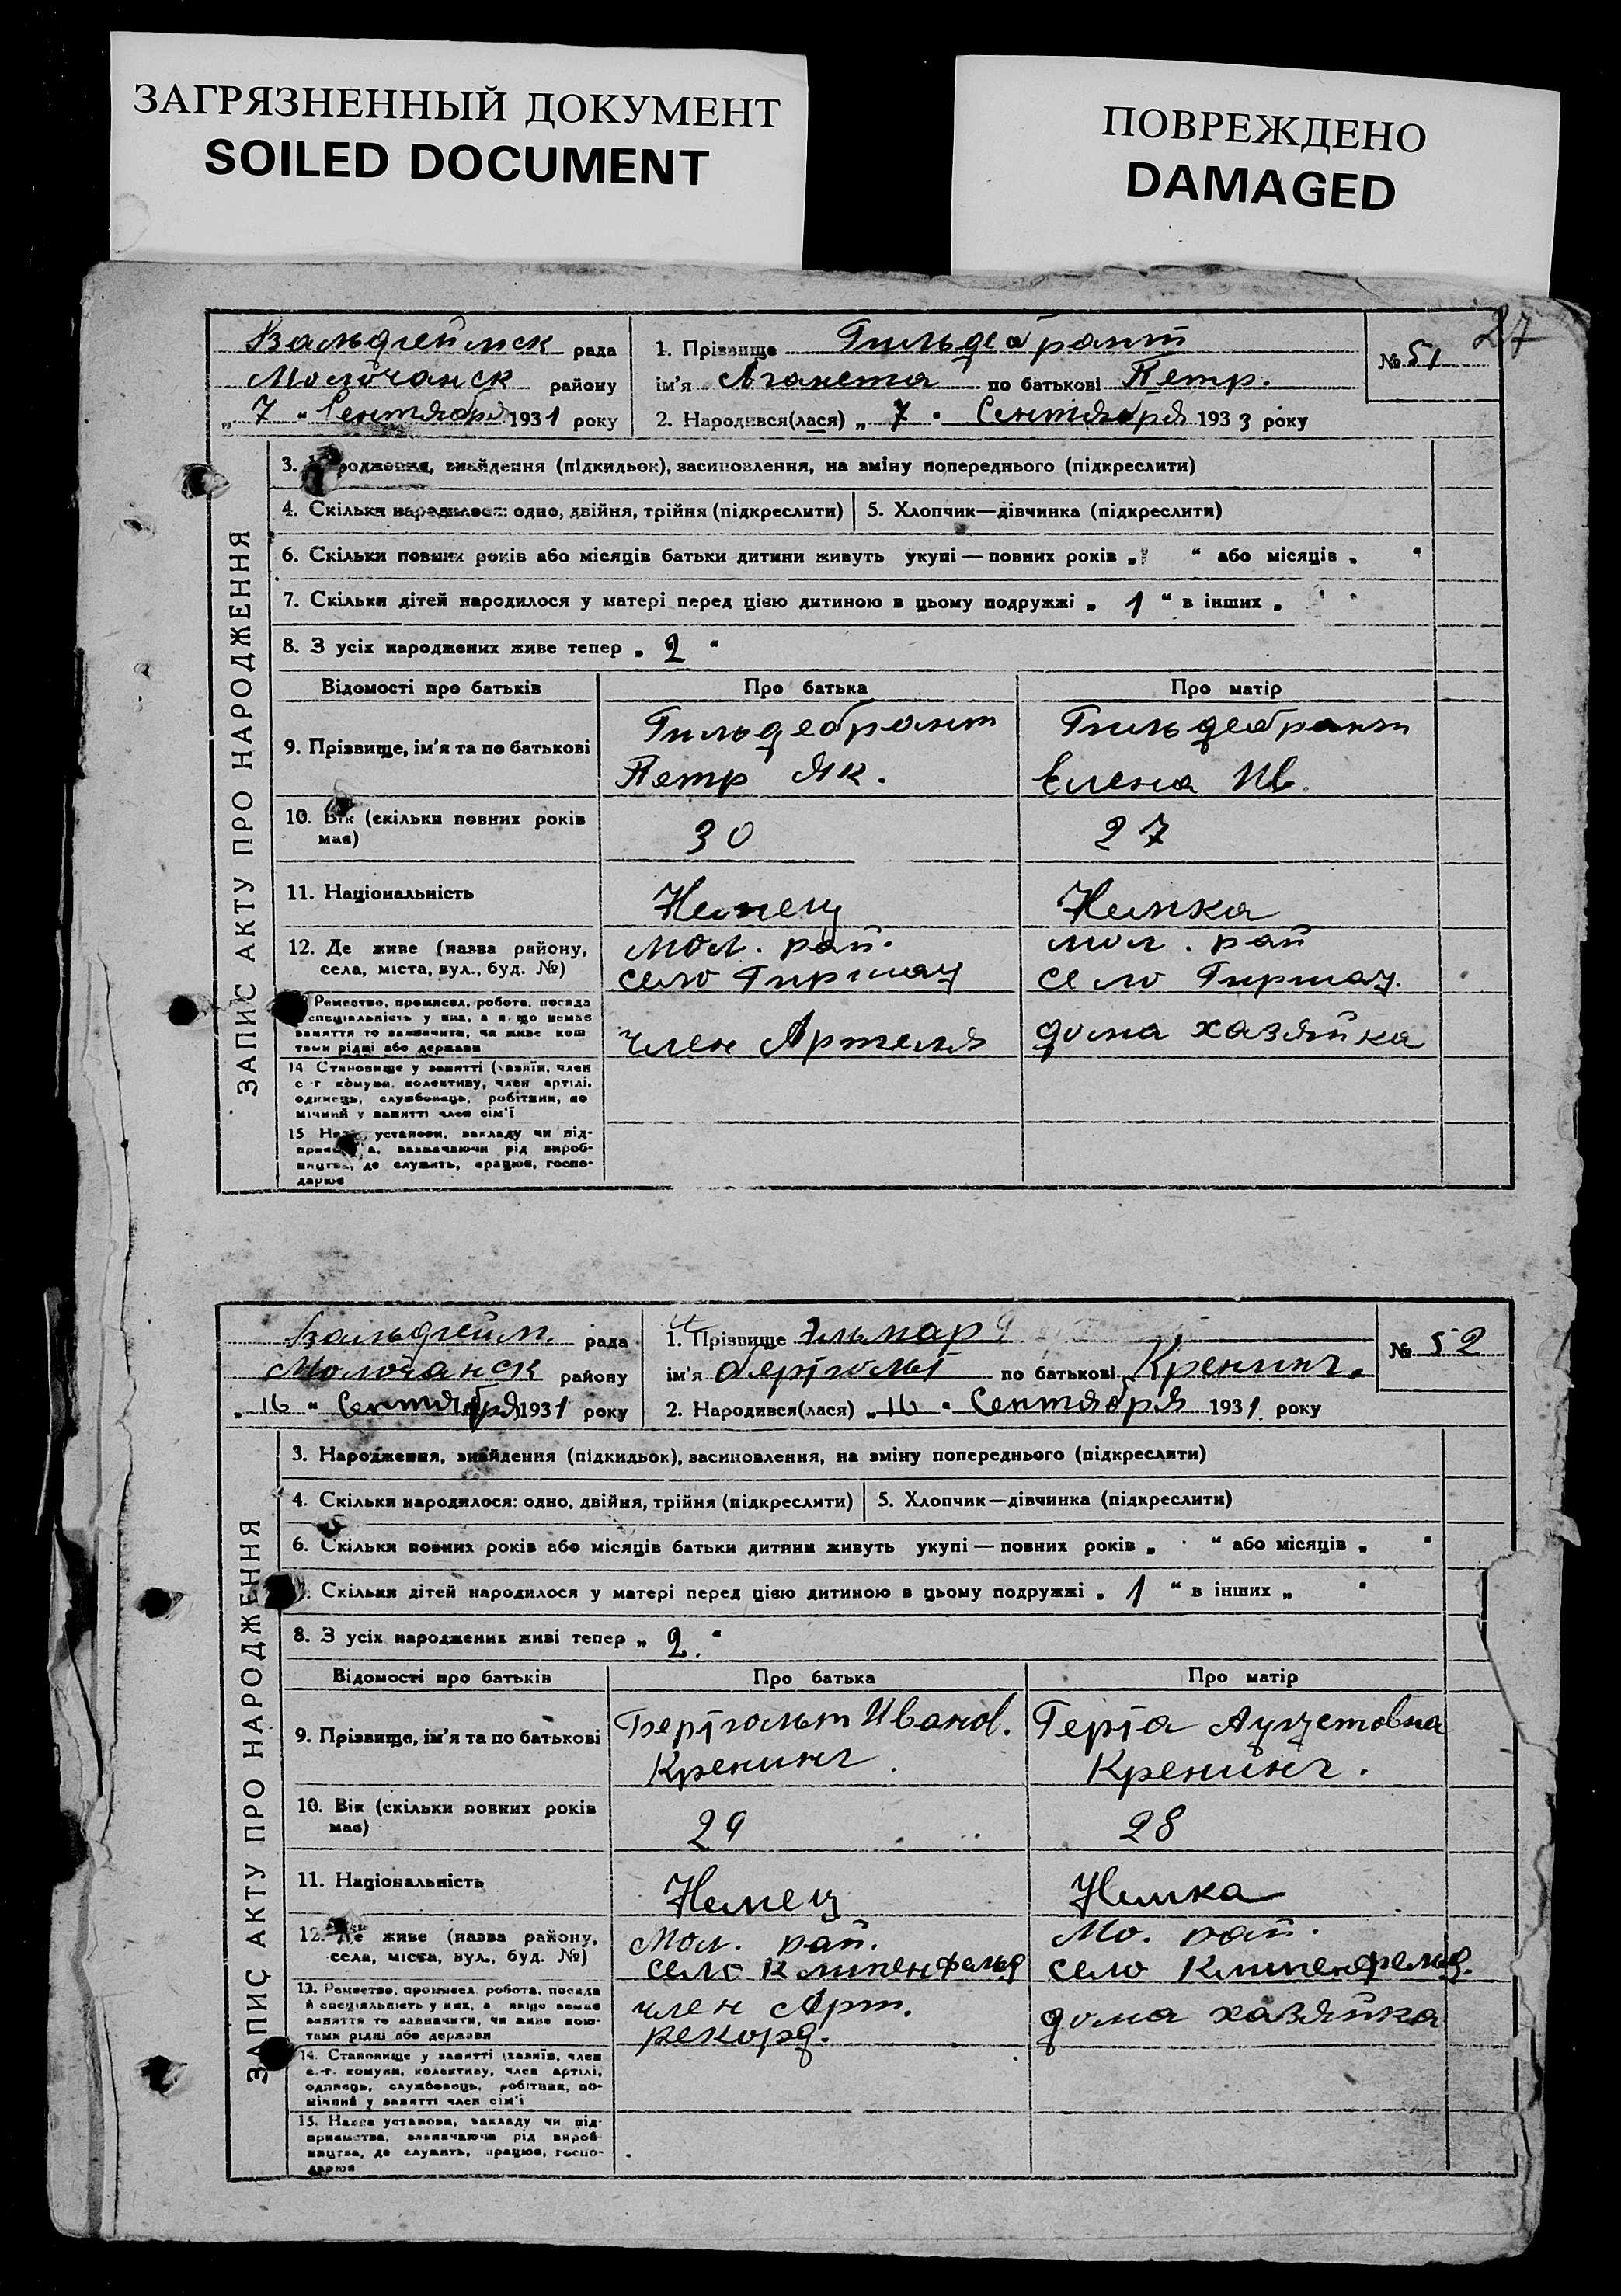 ЗАГРЯЗНЕННЫЙ ДОКУМЕНТ
SOILED DOCUMENT
ПОВРЕЖДЕНО
DAMAGED
27
ЗАПИС АКТУ ПРО НАРОДЖЕННЯ
Вальдгеймск рада
Молочанск району
„ 7 " Сентября 1931 року
1. Прізвище Гильдебрант
ім'я Аганета по батькові Петр.
2. Народився(лася) „ 7 " Сентября 1933 року
№ 51
3. Народження, знайдення (підкидьок), засиновлення, на зміну попереднього (підкреслити)
4. Скільки народилося: одно, двійня, трійня (підкреслити)
5. Хлопчик—дівчинка (підкреслити)
6. Скільки повних років або місяців батьки дитини живуть укупі — повних років „ " або місяців „ "
7. Скільки дітей народилося у матері перед цією дитиною в цьому подружжі „ 1 " в інших „ "
8. З усіх народжених живе тепер „ 2 "
Відомості про батьків
Про батька
Про матір
9. Прізвище, ім'я та по батькові
Гильдебрант
Петр Як.
Гильдебрант
Елена Ив.
10. Вік (скільки повних років має)
30
27
11. Національність
Немец
Немка
12. Де живе (назва району,
села, міста, вул., буд. №)
мол. рай.
село Гиршау
мол. рай
село Гиршау.
Ремество, промисел, робота, посада
спеціальність у них, а якщо немає
заняття то зазначити, чи живе кош
тами рідні або держави
член Артеля
дома хазяйка
14 Становище у занятті (хазяїн, член
с-г комуни, колективу, член артілі,
одинець, службовець, робітник, по
мічний у занятті член сім'ї
15 Назва установи, закладу чи під-
приємства, зазначаючи рід вироб-
ництва, де служить, працює, госпо-
дарює
ЗАПИС АКТУ ПРО НАРОДЖЕННЯ
Вальдгейм. рада
Молочанск району
„ 16 " Сентября 1931 року
1. Прізвище Эльмар
ім'я по батькові Кренинг.
2. Народився(лася) „ 16 " Сентября 1931 року
№ 52
3. Народження, знайдення (підкидьок), засиновлення, на зміну попереднього (підкреслити)
4. Скільки народилося: одно, двійня, трійня (підкреслити)
5. Хлопчик—дівчинка (підкреслити)
6. Скільки повних років або місяців батьки дитини живуть укупі — повних років „ " або місяців „ "
7. Скільки дітей народилося у матері перед цією дитиною в цьому подружжі „ 1 " в інших „ "
8. З усіх народжених живі тепер „ 2. "
Відомості про батьків
Про батька
Про матір
9. Прізвище, ім'я та по батькові
Бертгольт Иванов.
Кренинг.
Герта Аугустовна
Кренинг.
10. Вік (скільки повних років має)
29
28
11. Національність
Немец
Немка
12. Де живе (назва району,
села, міста, вул., буд. №)
Мол. рай.
село Клипенфельд
Мо. рай.
село Клипенфельд.
13. Ремество, промисел, робота, посада
й спеціальність у них, а якщо немає
заняття то зазначити, чи живе кош-
тами рідні або держави
член Арт.
рекорд.
дома хазяйка
14. Становище у занятті (хазяїн, член
с.-г. комуни, колективу, член артілі,
одинець, службовець, робітник, по-
мічний у занятті член сім'ї
15. Назва установи, закладу чи під-
приємства, зазначаючи рід вироб-
ництва, де служить, працює, госпо-
дарює